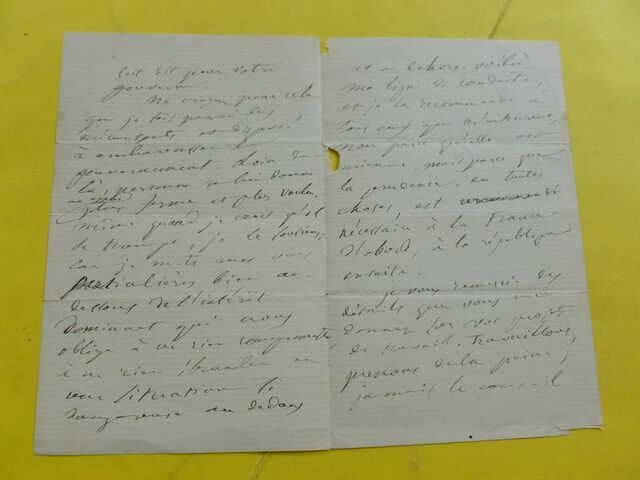 soit dit pour votre
gouverne.
Ne croyez pour cela
que je sois parmi les
mécontents et disposé
à embarrasser le
gouvernement. Loin de
là, personne ne lui donne
un plus ferme et plus
même quand je crois qu'il
se trompe, je le soutiens,
car je mets mes vues
particulières bien au
dessous de l'intérêt
dominant qui nous
oblige à ne rien compromettre
à ne rien ébranler dans
une situation si
dangereuse au dedans
et au dehors. voilà
ma ligne de conduite,
et je la recommande à
tous ceux qui m'aiment,
non parce qu'elle est
mienne, mais parce que
la prudence, en toutes
choses, est
nécessaire à la France
d'abord, à la république
ensuite.
je vous remercie des
détails que vous me
donnez sur vos projets
de travail. Travaillons,
prenons de la peine ;
jamais le conseil